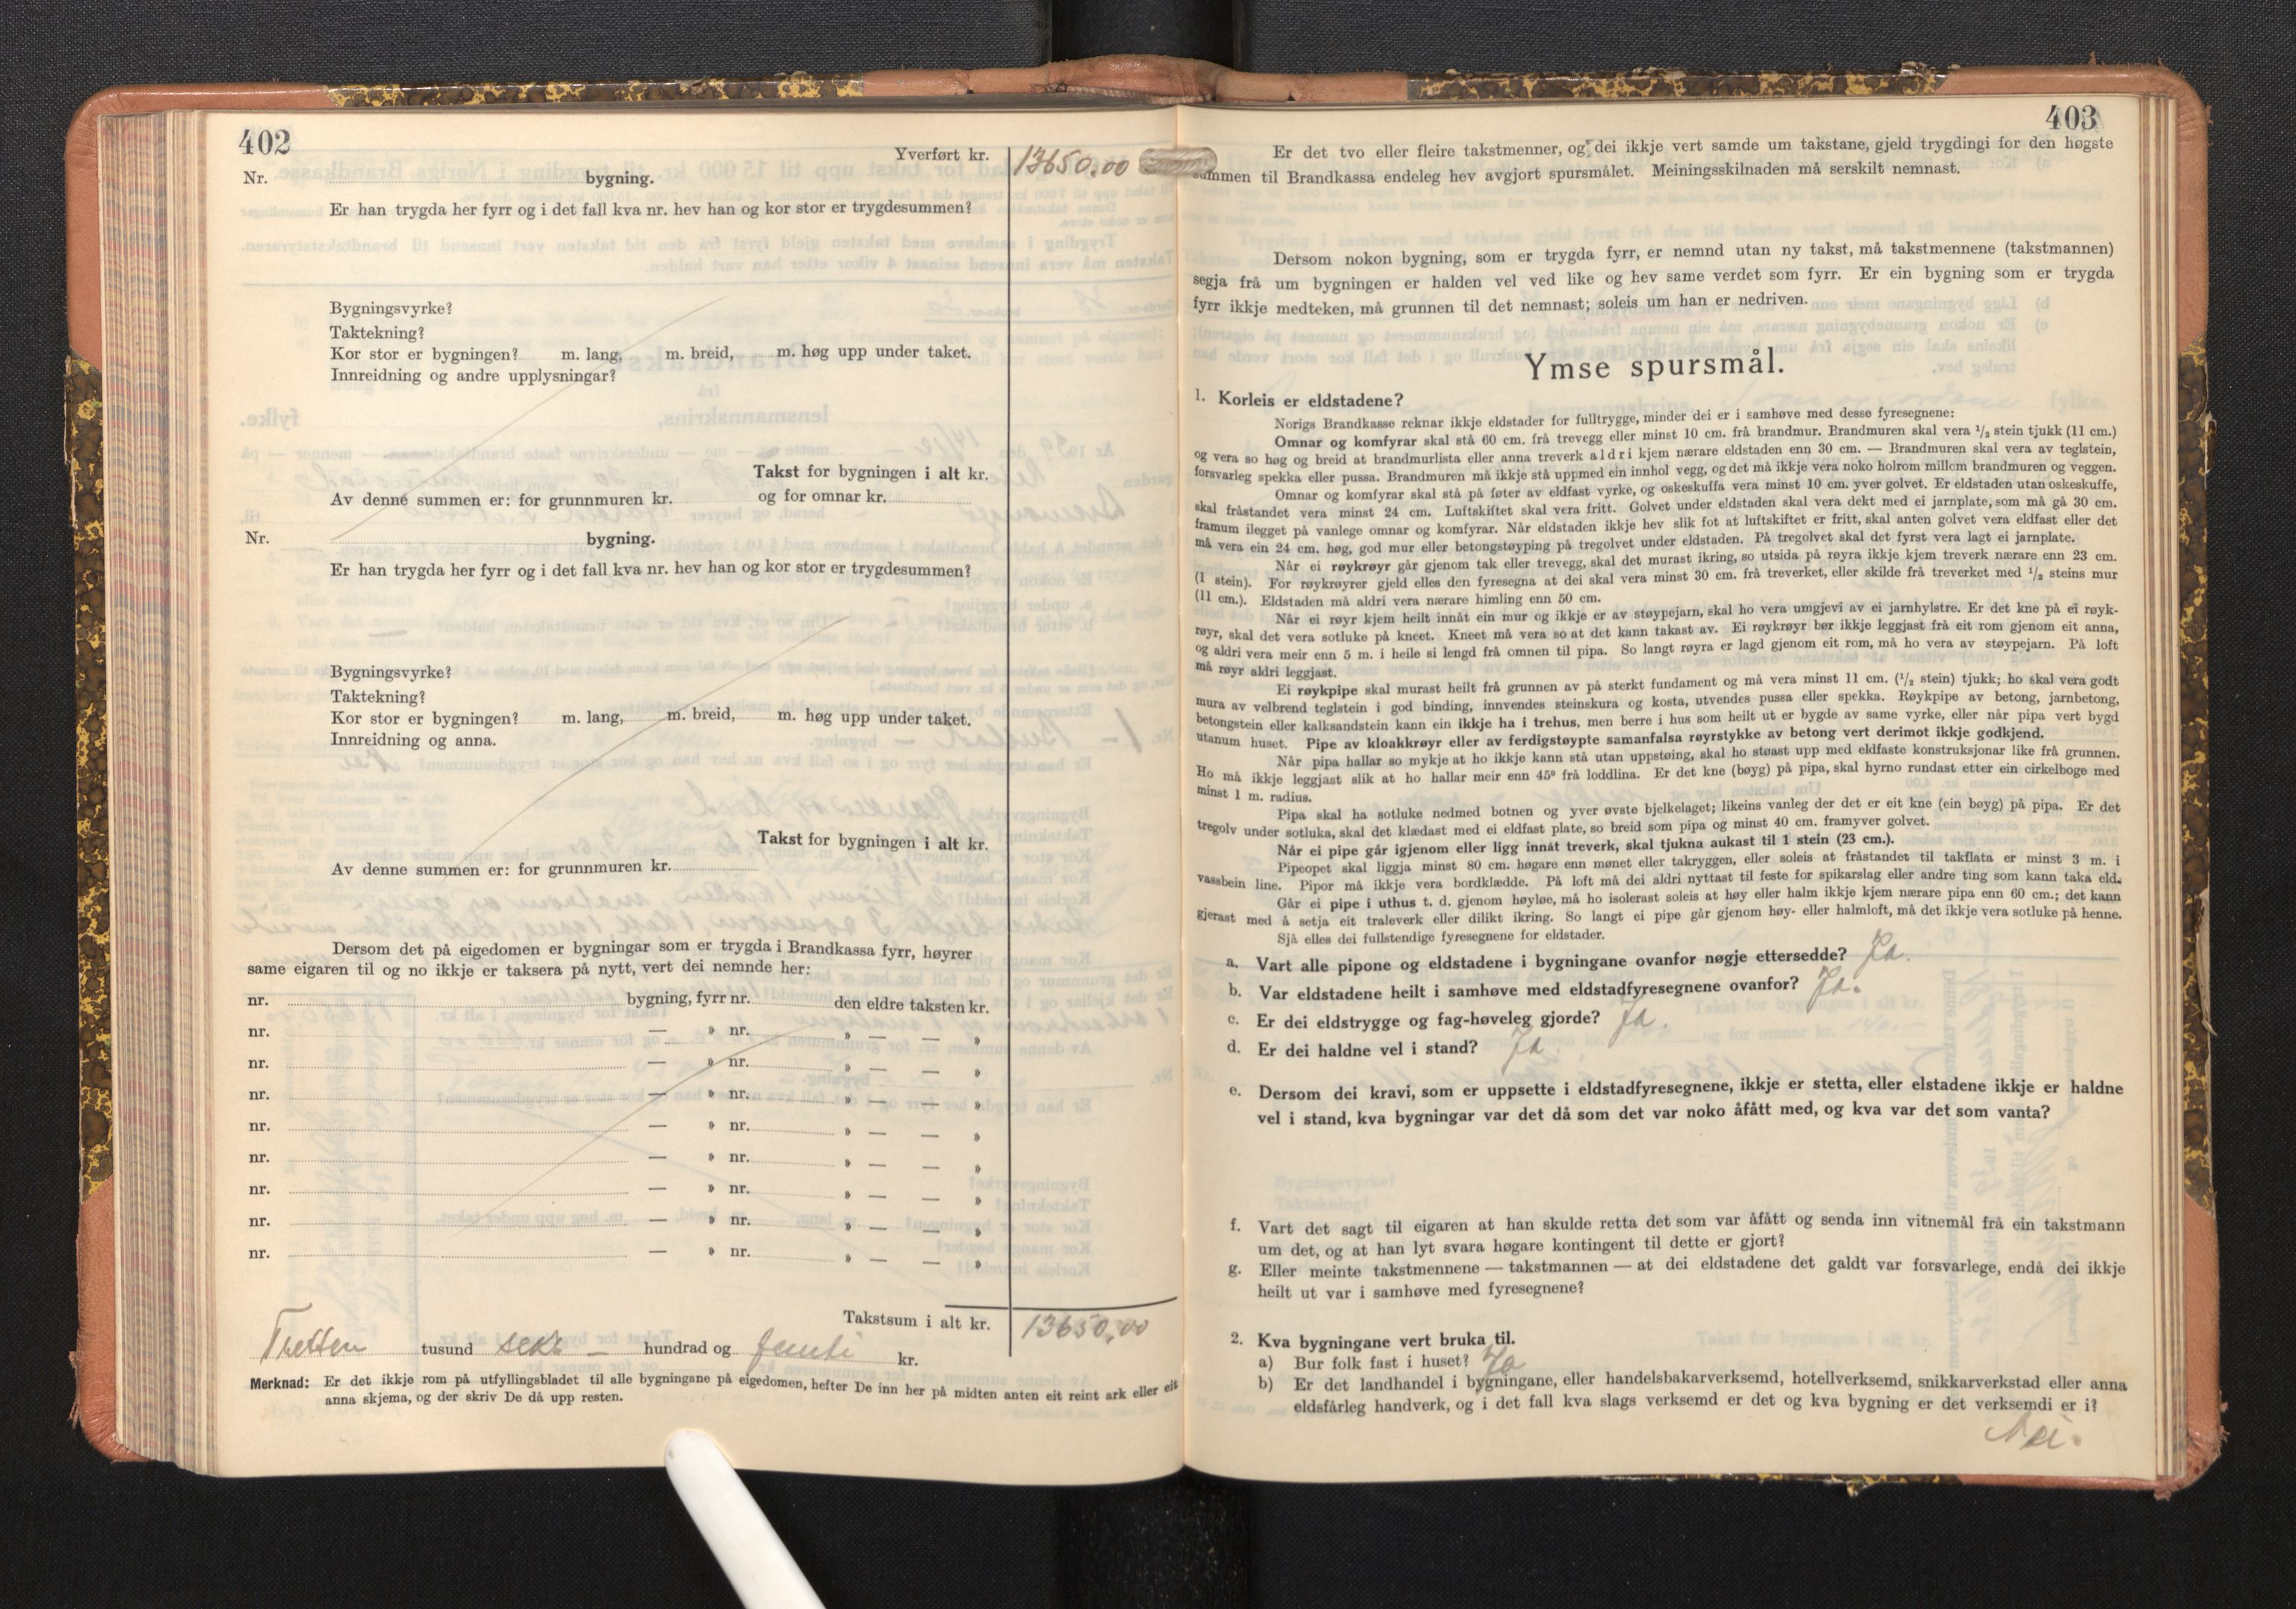 402
Yverført kr. 13650.00
Nr. bygning.
Er han trygda her fyrr og i det fall kva nr. hev han og kor stor er trygdesummen?
Bygningsvyrke?
Taktekning?
Kor stor er bygningen? m. lang, m. breid, m. høg upp under taket.
Innreidning og andre upplysningar?
Takst for bygningen i alt kr.
Av denne summen er: for grunnmuren kr. og for omnar kr.
Nr. bygning.
Er han trygda her fyrr og i det fall kva nr. hev han og kor stor er trygdesummen?
Bygningsvyrke?
Taktekning?
Kor stor er bygningen? m. lang, m. breid, m. høg upp under taket.
Innreidning og anna.
Takst for bygningen i alt kr.
Av denne summen er: for grunnmuren kr.
Dersom det på eigedomen er bygningar som er trygda i Brandkassa fyrr, høyrer
same eigaren til og no ikkje er taksera på nytt, vert dei nemnde her:
nr. bygning, fyrr nr. den eldre taksten kr.
nr. — » nr. » — — »
nr. — » nr. » — — »
nr. — » nr. » — — »
nr. — » nr. » — — »
nr. — » nr. » — — »
nr. — » nr. » — — »
nr. — » nr. » — — »
nr. — » nr. » — — »
Takstsum i alt kr. 13650.00
Tretten tusund seks — hundrad og femti kr.
Merknad: Er det ikkje rom på utfyllingsbladet til alle bygningane på eigedomen, hefter De inn her på midten anten eit reint ark eller eit
anna skjema, og der skriv De då upp resten.
403
Er det tvo eller fleire takstmenner, og dei ikkje vert samde um takstane, gjeld trygdingi for den høgste
summen til Brandkassa endeleg hev avgjort spursmålet. Meiningsskilnaden må serskilt nemnast.
Dersom nokon bygning, som er trygda fyrr, er nemnd utan ny takst, må takstmennene (takstmannen)
segja frå um bygningen er halden vel ved like og hev same verdet som fyrr. Er ein bygning som er trygda
fyrr ikkje medteken, må grunnen til det nemnast; soleis um han er nedriven.
Ymse spursmål.
1. Korleis er eldstadene?
Norigs Brandkasse reknar ikkje eldstader for fulltrygge, minder dei er i samhøve med desse fyresegnene:
Omnar og komfyrar skal stå 60 cm. frå trevegg eller minst 10 cm. frå brandmur. Brandmuren skal vera ¹/₂ stein tjukk (11 cm.)
og vera so høg og breid at brandmurlista eller anna treverk aldri kjem nærare eldstaden enn 30 cm. — Brandmuren skal vera av teglstein,
forsvarleg spekka eller pussa. Brandmuren må ikkje stå uppmed ein innhol vegg, og det må ikkje vera noko holrom millom brandmuren og veggen.
Omnar og komfyrar skal stå på føter av eldfast vyrke, og oskeskuffa vera minst 10 cm. yver golvet. Er eldstaden utan oskeskuffe,
skal fråstandet vera minst 24 cm. Luftskiftet skal vera fritt. Golvet under eldstaden skal vera dekt med ei jarnplate, som må gå 30 cm.
framum ilegget på vanlege omnar og komfyrar. Når eldstaden ikkje hev slik fot at luftskiftet er fritt, skal anten golvet vera eldfast eller det
må vera ein 24 cm. høg, god mur eller betongstøyping på tregolvet under eldstaden. På tregolvet skal det fyrst vera lagt ei jarnplate.
Når ei røykrøyr går gjenom tak eller trevegg, skal det murast ikring, so utsida på røyra ikkje kjem treverk nærare enn 23 cm.
(1 stein). For røykrøyrer gjeld elles den fyresegna at dei skal vera minst 30 cm. frå treverket, eller skilde frå treverket med ¹/₂ steins mur
(11 cm.). Eldstaden må aldri vera nærare himling enn 50 cm.
Når ei røyr kjem heilt innåt ein mur og ikkje er av støypejarn, skal ho vera umgjevi av ei jarnhylstre. Er det kne på ei røyk-
røyr, skal det vera sotluke på kneet. Kneet må vera so at det kann takast av. Ei røykrøyr bør ikkje leggjast frå eit rom gjenom eit anna,
og aldri vera meir enn 5 m. i heile si lengd frå omnen til pipa. So langt røyra er lagd gjenom eit rom, må ho vera av støypejarn. På loft
må røyr aldri leggjast.
Ei røykpipe skal murast heilt frå grunnen av på sterkt fundament og må vera minst 11 cm. (¹/₂ stein) tjukk; ho skal vera godt
mura av velbrend teglstein i god binding, innvendes steinskura og kosta, utvendes pussa eller spekka. Røykpipe av betong, jarnbetong,
betongstein eller kalksandstein kann ein ikkje ha i trehus, men berre i hus som heilt ut er bygde av same vyrke, eller når pipa vert bygd
utanum huset. Pipe av kloakkrøyr eller av ferdigstøypte samanfalsa røyrstykke av betong vert derimot ikkje godkjend.
Når pipa hallar so mykje at ho ikkje kann stå utan uppstøing, skal ho støast upp med eldfaste konstruksjonar like frå grunnen.
Ho må ikkje leggjast slik at ho hallar meir enn 45º frå loddlina. Er det kne (bøyg) på pipa, skal hyrno rundast etter ein cirkelboge med
minst 1 m. radius.
Pipa skal ha sotluke nedmed botnen og yver øvste bjelkelaget; likeins vanleg der det er eit kne (ein bøyg) på pipa. Er det
tregolv under sotluka, skal det klædast med ei eldfast plate, so breid som pipa og minst 40 cm. framyver golvet.
Når ei pipe går igjenom eller ligg innåt treverk, skal tjukna aukast til 1 stein (23 cm.).
Pipeopet skal liggja minst 80 cm. høgare enn mønet eller takryggen, eller soleis at fråstandet til takflata er minst 3 m. i
vassbein line. Pipor må ikkje vera bordklædde. På loft må dei aldri nyttast til feste for spikarslag eller andre ting som kann taka eld.
Går ei pipe i uthus t. d. gjenom høyløe, må ho isolerast soleis at høy eller halm ikkje kjem nærare pipa enn 60 cm.; det kann
gjerast med å setja eit traleverk eller dilikt ikring. So langt ei pipe går gjenom høy- eller halmloft, må det ikkje vera sotluke på henne.
Sjå elles dei fullstendige fyresegnene for eldstader.
a. Vart alle pipone og eldstadene i bygningane ovanfor nøgje ettersedde? Ja.
b. Var eldstadene heilt i samhøve med eldstadfyresegnene ovanfor? Ja.
c. Er dei eldstrygge og fag-høveleg gjorde? Ja.
d. Er dei haldne vel i stand? Ja.
e. Dersom dei kravi, som er uppsette i eldstadfyresegnene, ikkje er stetta, eller elstadene ikkje er haldne
vel i stand, kva bygningar var det då som det var noko åfått med, og kva var det som vanta?
f. Vart det sagt til eigaren at han skulde retta det som var åfått og senda inn vitnemål frå ein takstmann
um det, og at han lyt svara høgare kontingent til dette er gjort?
g. Eller meinte takstmennene — takstmannen — at dei eldstadene det galdt var forsvarlege, endå dei ikkje
heilt ut var i samhøve med fyresegnene?
2. Kva bygningane vert bruka til.
a) Bur folk fast i huset? Ja
b) Er det landhandel i bygningane, eller handelsbakarverksemd, hotellverksemd, snikkarverkstad eller anna
eldsfårleg handverk, og i det fall kva slags verksemd er det og kva bygning er det verksemdi er i?
Nei.